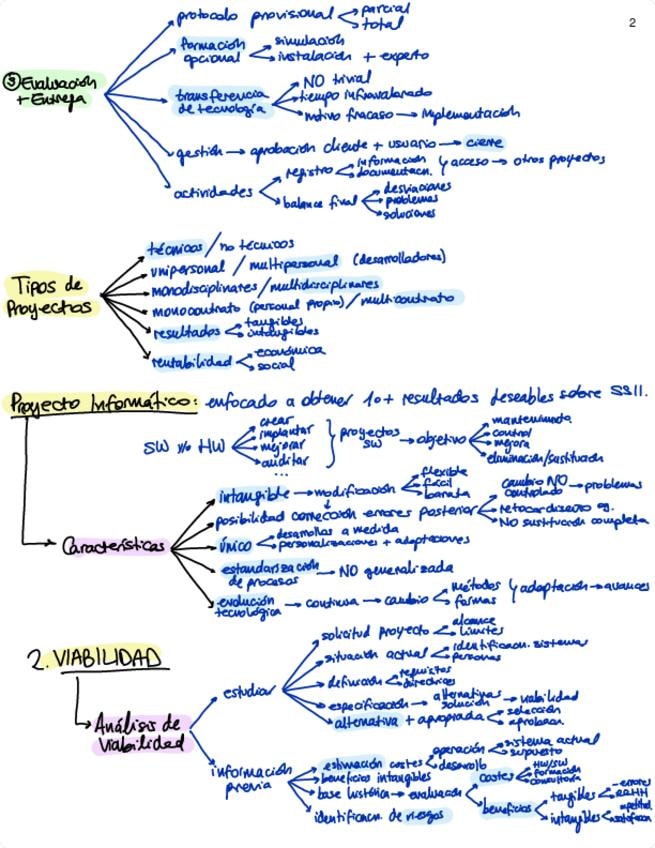 2
⑤ Evaluación
+ Entrega
protocolo provisional
parcial
total
formación
opcional
simulación
instalación + experto
transferencia
de tecnología
NO trivial
tiempo infravalorado
motivo fracaso → implementación
gestión → aprobación cliente + usuario → cierre
actividades
registro
información
documentacn.
y acceso → otros proyectos
balance final
desviaciones
problemas
soluciones
Tipos de
Proyectos
técnicos / no técnicos
unipersonal / multipersonal (desarrolladores)
monodisciplinares / multidisciplinares
monocontrato (personal propio) / multicontrato
resultados
tangibles
intangibles
rentabilidad
económica
social
Proyecto Informático: enfocado a obtener 1 o + resultados deseables sobre SSII.
SW y/o HW
crear
implantar
mejorar
auditar
...
proyectos
SW
→ objetivo
mantenimiento
control
mejora
eliminación/sustitución
Características
intangible → modificación
flexible
fácil
barata
posibilidad corrección errores posterior
cambio NO
controlado → problemas
retocar diseño og.
NO sustitución completa
único
desarrollos a medida
personalizaciones + adaptaciones
estandarización
de procesos → NO generalizada
evolución
tecnológica → continua → cambio
métodos
formas
y adaptación → avances
2. VIABILIDAD
Análisis de
Viabilidad
estudiar
solicitud proyecto
alcance
límites
situación actual
identificacn. sistemas
personas
definición
requisitos
directrices
especificación → alternativas
solución → viabilidad
alternativa + apropiada
selección
aprobacn.
información
previa
estimación costes
operación
desarrollo
sistema actual
supuesto
beneficios intangibles
base histórica → evaluación
costes
HW/SW
formación
consultoría
beneficios
tangibles
- errores
RRHH
intangibles
satisfaccn
identificacn. de riesgos